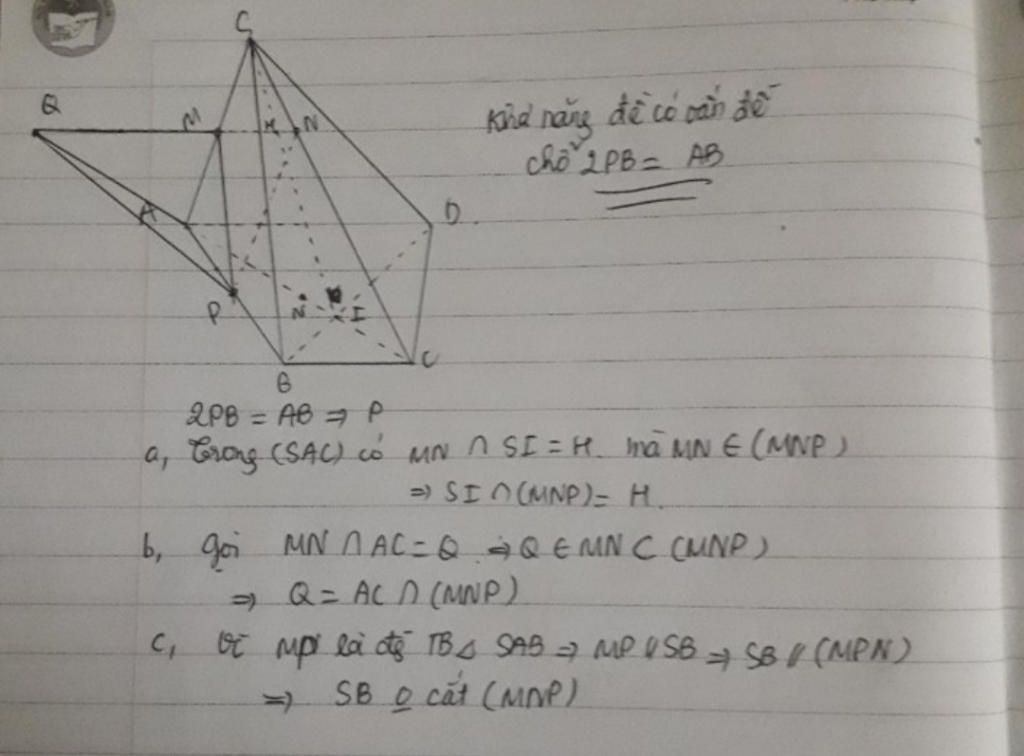 S
Q
M
H
N
Khả năng đề có vấn đề
chỗ 2PB = AB
A
D
P
N
I
B
C
2PB = AB ⇒ P
a, Trong (SAC) có MN ∩ SI = H. mà MN ∈ (MNP)
⇒ SI ∩ (MNP) = H.
b, gọi MN ∩ AC = Q ⇒ Q ∈ MN ⊂ (MNP)
⇒ Q = AC ∩ (MNP)
c, Vì MP là đg TB △ SAB ⇒ MP // SB ⇒ SB // (MPN)
⇒ SB o cắt (MNP)